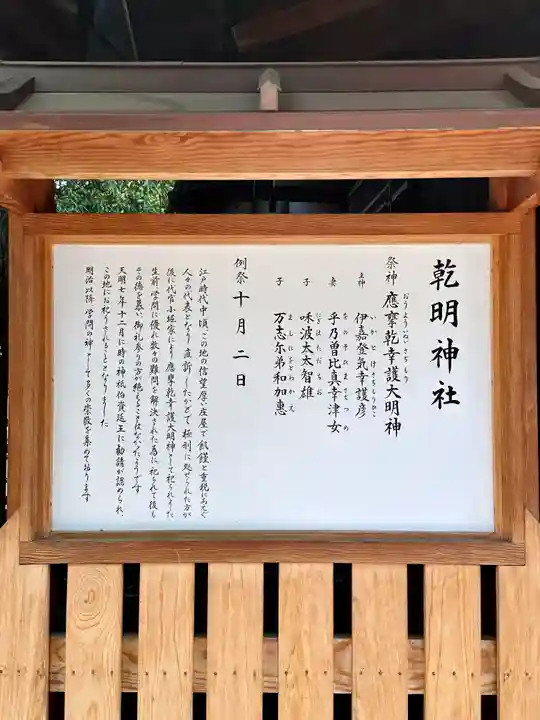 乾明神社
祭神 應摩乾幸護大明神
主神 伊嘉登氣幸護彦
いかとけさちもりひこ
妻 乎乃曽比真幸津女
をのそひまさつめ
子 味波太太智雄
みはただちお
子 万志尓弟和加惠
ましにをとわかえ
例祭 十月二日
江戸時代中頃、この地の信望厚い庄屋で飢饉と重税にあえぐ
人々の代表となり、直訴したかどで極刑に処せられた方が
後に代官小堀家により應摩乾幸護大明神として祀られました
生前、学問に優れ数々の難問を解決された為に祀られて後も
その徳を慕い、御礼参りの方が絶えることはなかったようです
天明七年十二月に時の神祇伯資延王に勧請が認められ、
この地にお祀りされることとなりました
明治以降、学問の神として多くの崇敬を集めております